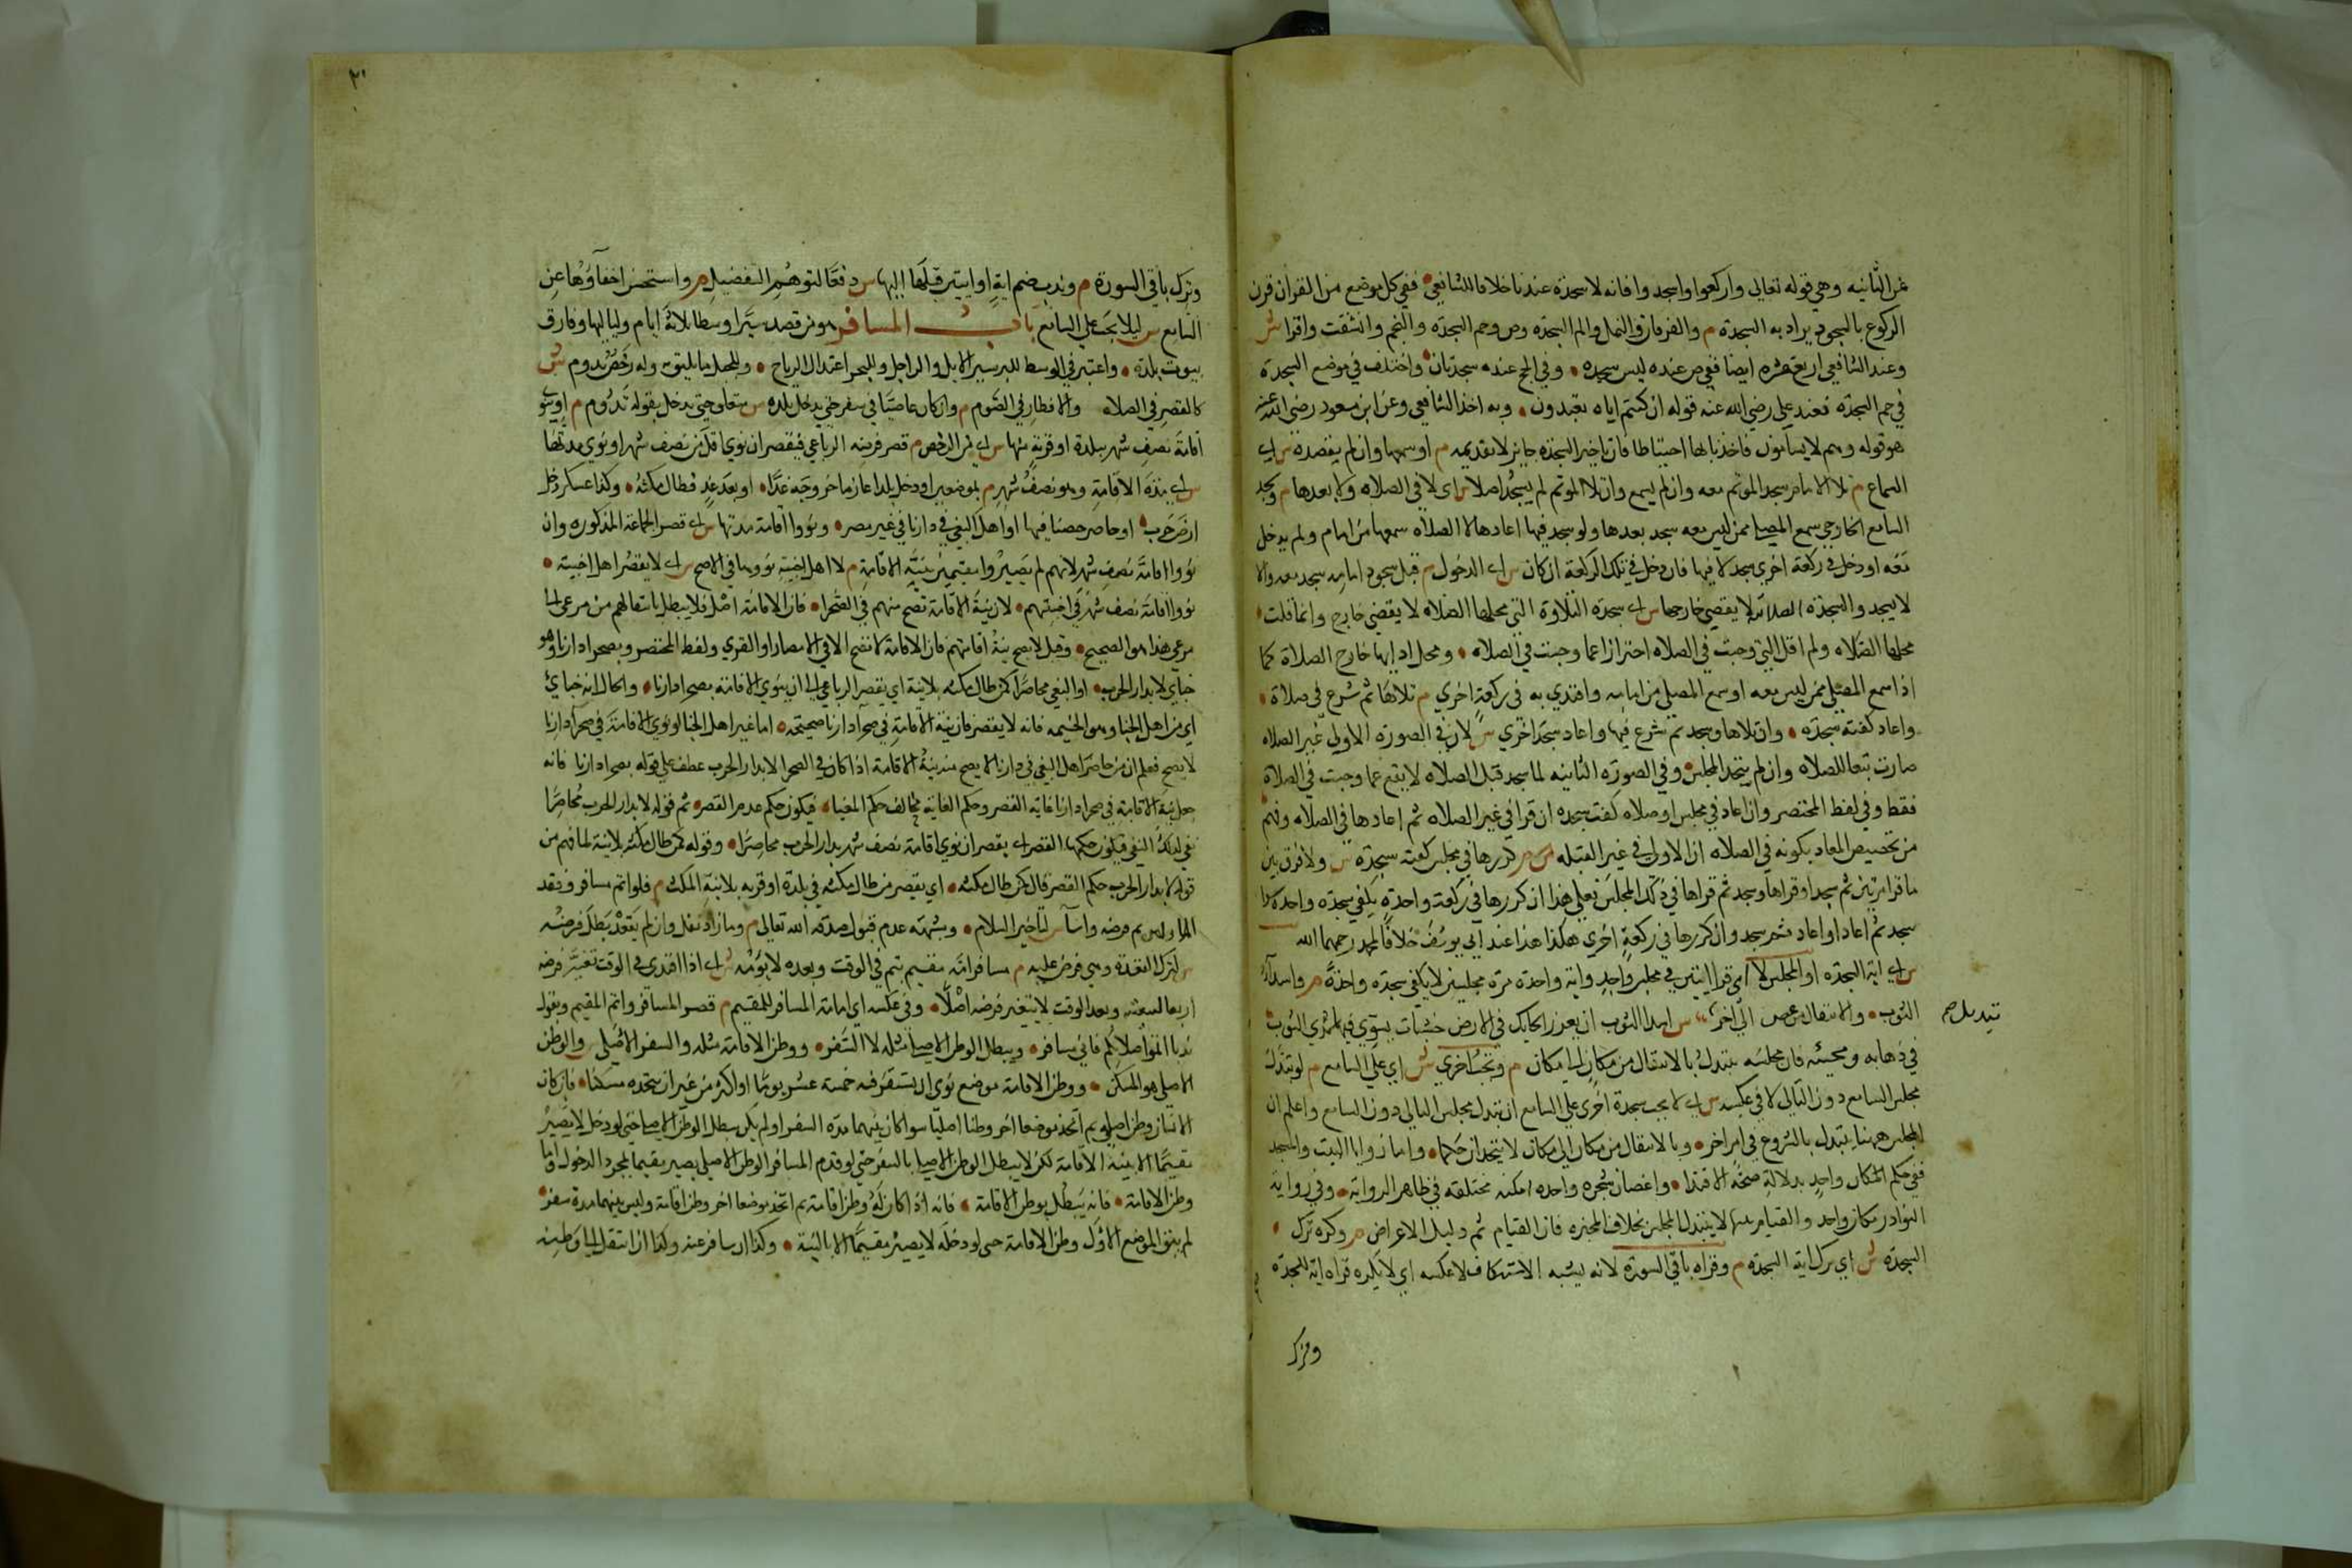 عن الثانيه وهي قوله تعالى واركعوا واسجدوا فانه لا سجدة عندنا خلافا للشافعي ففي كل موضع من القرآن قرن
الركوع بالسجود يراد به السجدة م والفرقان والنمل والم السجدة وص وحم السجدة والنجم وانشقت واقرا ش
وعند الشافعي اربع عشره ايضا ففي ص عنده ليس سجده وفي الحج عنده سجدتان واختلف في موضع السجدة
في حم السجدة فعند علي رضي الله عنه قوله ان كنتم اياه تعبدون وبه اخذ الشافعي وعن ابن مسعود رضي الله عنه
هو قوله وهم لا يسأمون فاخذنا بهذا احتياطا فان تاخير السجدة جائز لا تقديمه م او سمعها وان لم يقصده ش اي
السماع م تلا الامام سجد الموتم معه وان لم يسمع وان تلا الموتم لم يسجد اصلا ش اي لا في الصلاه ولا بعدها م وسجد
السامع الخارجي سمع المصلي ممن ليس معه سجد بعدها ولو سجد فيها اعادها لا الصلاة سمعها من امام ولم يدخل
معه او دخل في ركعة اخرى سجد لا فيها فان دخل في تلك الركعة ان كان ش اي الدخول م قبل سجود امامه سجد معه والا
لا يسجد والسجدة الصلاتية لا يقضي خارجها س اي سجدة التلاوة التي محلها الصلاه لا يقضي خارج وانما قلت
محلها الصلاه ولم اقل التي وجبت في الصلاه احترازا عما وجبت في الصلاه ومحل ادايها خارج الصلاة كما
اذا سمع المصلي ممن ليس معه او سمع المصلي من امامه واقتدي به في ركعة اخري م تلاها ثم شرع في صلاة
واعاد كفته سجدة وان تلاها وسجد ثم شرع فيها واعاد سجد اخري س لان في الصورة الاولى غير الصلاه
صارت تبعا للصلاه وان لم يتحد المجلس وفي الصورة الثانيه لما سجد قبل الصلاه لا يقع عما وجبت في الصلاة
فقط وفي لفظ المختصر وان اعاد في مجلس او صلاه كفت سجده ان قرا في غير الصلاه ثم اعادها في الصلاه وفهم
من تخصيص المعاد بكونه في الصلاه ان الاولى في غير القبله م كررها في مجلس كفته سجدة س ولا فرق بين
ما قرا مرتين ثم سجد او قراها وسجد ثم قراها في ذلك المجلس فعلى هذا ان كررها في ركعة واحدة يكفي سجدة واحدة سوا
سجد ثم اعاد او اعاد ثم سجد وان كررها في ركعة اخري هكذا هذا عند ابي يوسف خلافا لمحمد رحمهما الله
س اي اية السجدة او المجلس لا اي قرا ايتين في مجلس واحد واية واحدة مرة مجلسين لا يكفي سجدة واحدة م واسداء
الثوب والانتقال من غصن الي آخر تبديل ص س اسدا الثوب ان يغرز الحائك في الارض خشبات يسوي فيها سدي الثوب
في ذهابه ومجيئه فان مجلسه يتبدل بالانتقال من مكان الي مكان م وتجب اخري ش اي علي السامع م لو تبدل
مجلس السامع دون التالي لا في عكسه س اي لا يجب سجدة اخرى علي السامع ان تبدل مجلس التالي دون السامع واعلم ان
المجلس ههنا يتبدل بالشروع في امر اخر وبالانتقال من مكان الى مكان لا يتحدان حكما واما زوايا البيت والمسجد
ففي حكم المكان واحد بدلالة صحة الاقتدا واغصان شجره واحده امكنه مختلفه في ظاهر الرواية وفي رواية
النوادر مكان واحد والقيام ههنا لا يتبدل المجلس بخلاف المخيره فان القيام ثم دليل الاعراض م وكره ترك
السجدة ش اي ترك اية السجدة م وقراه باقي السورة لانه يشبه الاستنكاف لا عكسه اي لا يكره قراه اية السجدة
وترك
٢١
وترك باقي السورة م وندب ضم اية او ايتين قبلها اليها س دفعا لتوهم التفضيل م واستحسن اخفاؤها عن
السامع س ليلا يجب علي السامع باب المسافر هو من قصد سيرا وسطا ثلاثة ايام ولياليها وفارق
بيوت بلده واعتبر في الوسط للبر سير الابل والراجل وللبحر اعتدال الرياح وللجبل ما يليق به وله رخص تدوم ش
كالقصر في الصلاه والافطار في الصوم م وان كان عاصيا في سفر حتي يدخل بلده س متعلق حتى يدخل بقوله تدوم م او ينوي
اقامة نصف شهر ببلدة او قرية منها س اي من الرخص م قصر فرضه الرباعي فيقصر ان نوي اقل من نصف شهر او نوي مدتها
س اي مدة الاقامة وهو نصف شهر م بموضعين او دخل بلدا عازما خروجه غدا او بعد غد فطال مكثه وكذا عسكر دخل
ارض حرب او حاصر حصنا فيها او اهل البغي في دارنا في غير مصر ونووا اقامة مدتها س اي قصر الجماعة المذكوره وان
نووا اقامة نصف شهر لانهم لم يصيروا مقيمين بنية الاقامة م لا اهل اخبية نووها في الاصح س اي لا يقصر اهل اخبية
نووا اقامة نصف شهر في اخبيتهم لان نية الاقامة تصح منهم في الصحرا فان الاقامة اصل فلا يبطل بانتقالهم من مرعى الى
مرعي هذا هو الصحيح وقيل لا يصح نية اقامتهم فان الاقامة لا تصح الا في الامصار او القري ولفظ المختصر وبصحرا دارنا وهو
خبائي لا بدار الحرب او البغي محاصرا كمن طال مكثه بلا نية اي يقصر الرباعي الى ان ينوي الاقامة بصحرا دارنا والحال انه خبائي
اي من اهل الخبا وهو الخيمه فانه لا يقصر فان نية الاقامة في صحرا دارنا صحيحة اما غير اهل الخبا لو نوي الاقامة في صحرا دارنا
لا يصح فعلم ان من حاصر اهل البغي في دارنا لا يصح منه نية الاقامة اذا كان في الصحرا لا بدار الحرب عطف علي قوله بصحرا دارنا فانه
جعل نية الاقامة في صحرا دارنا غاية القصر وحكم الغاية مخالف حكم المغيا فيكون حكم عدم القصر ثم قوله لا بدار الحرب محاصرا
نفي لذلك النفي فيكون حكمها القصر اي يقصر ان نوي اقامة نصف شهر بدار الحرب محاصرا وقوله كمن طال مكثه بلا نية لما فهم من
قوله لا بدار الحرب حكم القصر قال كمن طال مكثه اي يقصر من طال مكثه في بلدة او قريه بلا نية المكث م فلو اتم مسافر وقعد
الاولى تم فرضه واسآ س لتاخير السلام وشبهة عدم قبول صدقة الله تعالى م وما زاد نفل وان لم يقعد بطل فرضه
س لترك القعدة وهي فرض عليه م مسافر امه مقيم يتم في الوقت وبعده لا يؤمه س اي اذا اقتدى في الوقت تغير فرضه
اربعا لتبعيته وبعد الوقت لا يتغير فرضه اصلا وفي عكسه اي امامة المسافر للمقيم م قصر المسافر واتم المقيم ويقول
ندبا اتموا صلاتكم فاني مسافر ويبطل الوطن الاصلي مثله لا السفر ووطن الاقامة مثله والسفر الاصلي س والوطن
الاصلي هو المسكن ووطن الاقامة موضع نوى ان يستقر فيه خمسة عشر يوما او اكثر من غير ان يتخذه مسكنا فان كان
لانسان وطن اصلي ثم اتخذ موضعا اخر وطنا اصليا سوا كان بينهما مدة السفر او لم يكن يبطل الوطن الاصلي حتى لو دخل لا يصير
مقيما الا بنية الاقامة لكن لا يبطل الوطن الاصلي بالسفر حتي لو قدم المسافر الوطن الاصلي يصير مقيما بمجرد الدخول واما
وطن الاقامة فانه يبطل بوطن الاقامة فانه اذا كان له وطن اقامة ثم اتخذ موضعا اخر وطن اقامة وليس بينهما مدة سفر
لم يبق الموضع الاول وطن الاقامة حتى لو دخله لا يصير مقيما الا بالنية وكذا ان سافر عنه وكذا ان انتقل الى وطنه